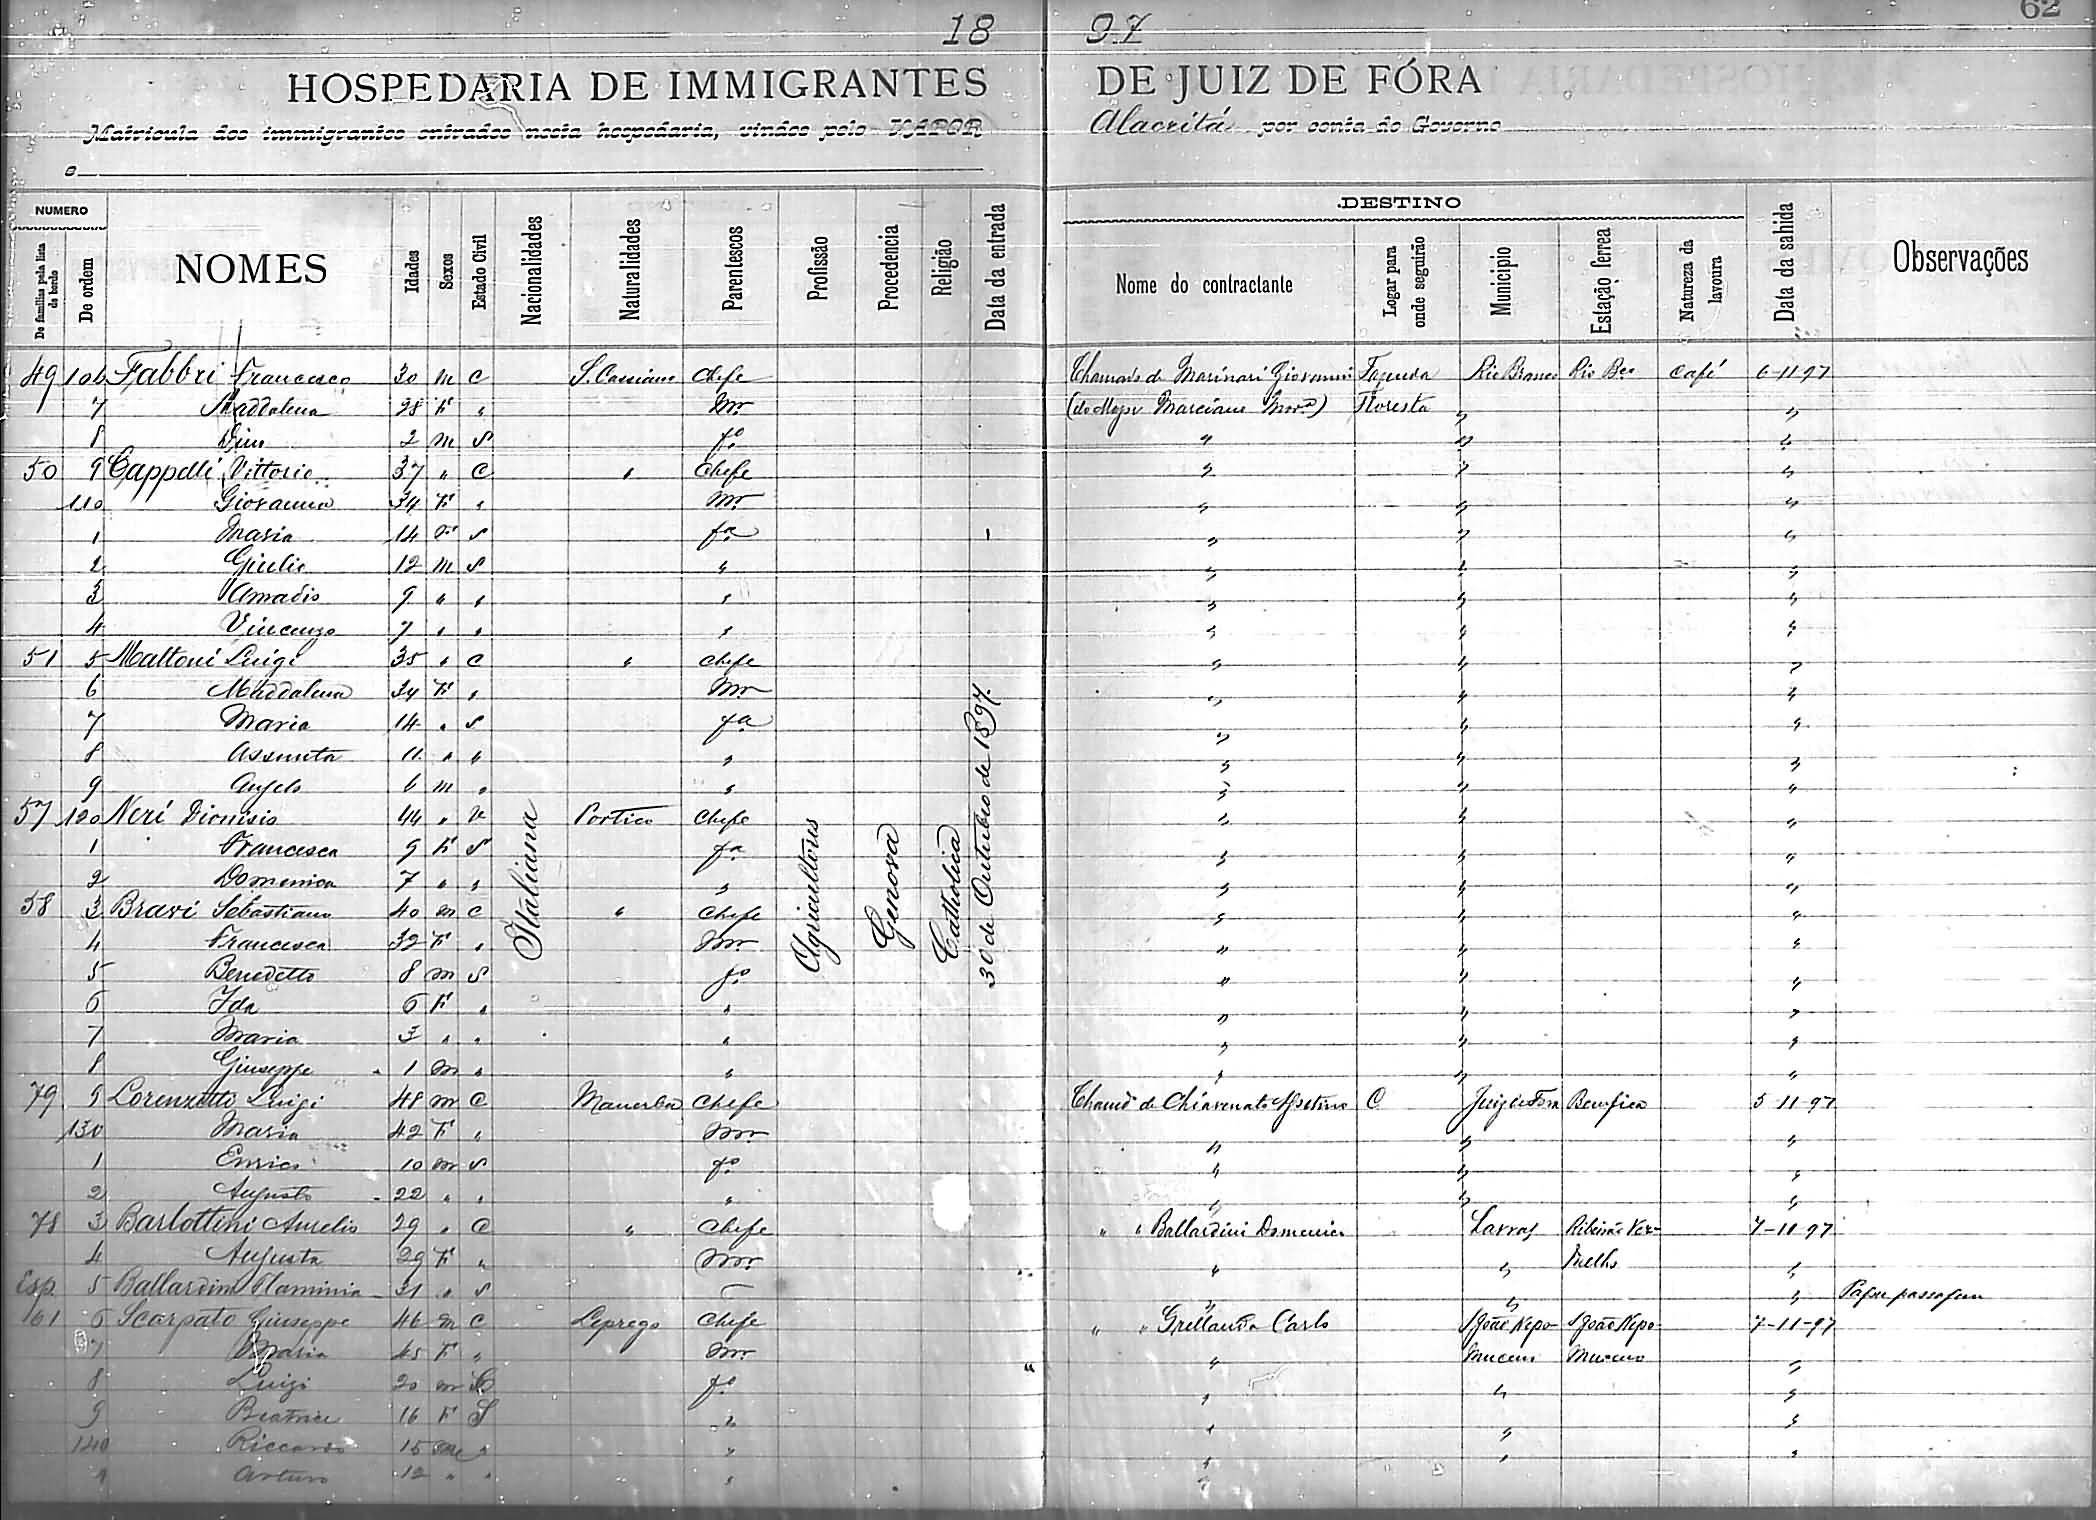 18 97
62
HOSPEDARIA DE IMMIGRANTES DE JUIZ DE FÓRA
Matricula dos immigrantes entrados nesta hospedaria, vindos pelo VAPOR Alacritá por conta do Governo
o
NUMERO
De familias pela lista de bordo
De ordem
NOMES
Idades
Sexos
Estado Civil
Nacionalidades
Naturalidades
Parentescos
Profissão
Procedencia
Religião
Data da entrada
DESTINO
Nome do contractante
Logar para onde seguirão
Municipio
Estação ferrea
Natureza da lavoura
Data da sahida
Observações
Italiana
Agricultores
Genova
Catholica
30 de Outubro de 1897.
49 106 Fabbri Francesco 30 m C S. Cassiano Chefe Chamado de Marinari Giovanni Fazenda Rio Branco Rio Bco Café 6-11 97
7 Maddalena 28 F " Mr. Floresta " "
8 Dino 2 m S fo " " "
50 9 Cappelli Vittorio 37 " C " Chefe " " "
110 Giovanna 34 F " Mr. " " "
1 Maria 14 F S fa " " "
2 Giulio 12 m S " " " "
3 Amadio 9 " " " " " "
4 Vincenzo 7 " " " " " "
51 5 Mattoni Luigi 35 " C " Chefe " " "
6 Maddalena 34 F " Mr. " " "
7 Maria 14 " S fa " " "
8 Assunta 11 " " " " " "
9 Angelo 6 m " " " " "
57 120 Neri Dionisio 44 " V Portico Chefe " " "
1 Francesca 9 F S fa " " "
2 Domenica 7 " " " " " "
58 3 Bravi Sebastiano 40 m C " Chefe " " "
4 Francesca 32 F " Mr. " " "
5 Benedetto 8 m S fo " " "
6 Ida 6 F " " " " "
7 Maria 3 " " " " " "
8 Giuseppe 1 m " " " " "
79 9 Lorenzetti Luigi 48 m C Manerba Chefe Chamdo de Chiavenato C Juiz de Fora Bemfica 5-11-97
130 Maria 42 F " Mr. " " "
1 Enrico 10 m S fo " " "
2 Augusto 22 " " " " " "
78 3 Barlottini Aurelio 29 " C " Chefe " " Ballardini Domenico Lavras Ribeirão Ver- 7-11-97
4 Augusta 29 F " Mr. " " melho "
Esp. 5 Ballardini Flaminia 31 " S — " " " Pagou passagem
161 6 Scarpato Giuseppe 46 m C Leprego Chefe " " Grellanda Carlo S João Nepo- S João Nepo- 7-11-97
7 Maria 45 F " Mr. " muceno muceno "
8 Luigi 20 m S fo " " "
9 Beatrice 16 F S " " "
140 Riccardo 15 m " " " " "
1 Arturo 12 " " " "